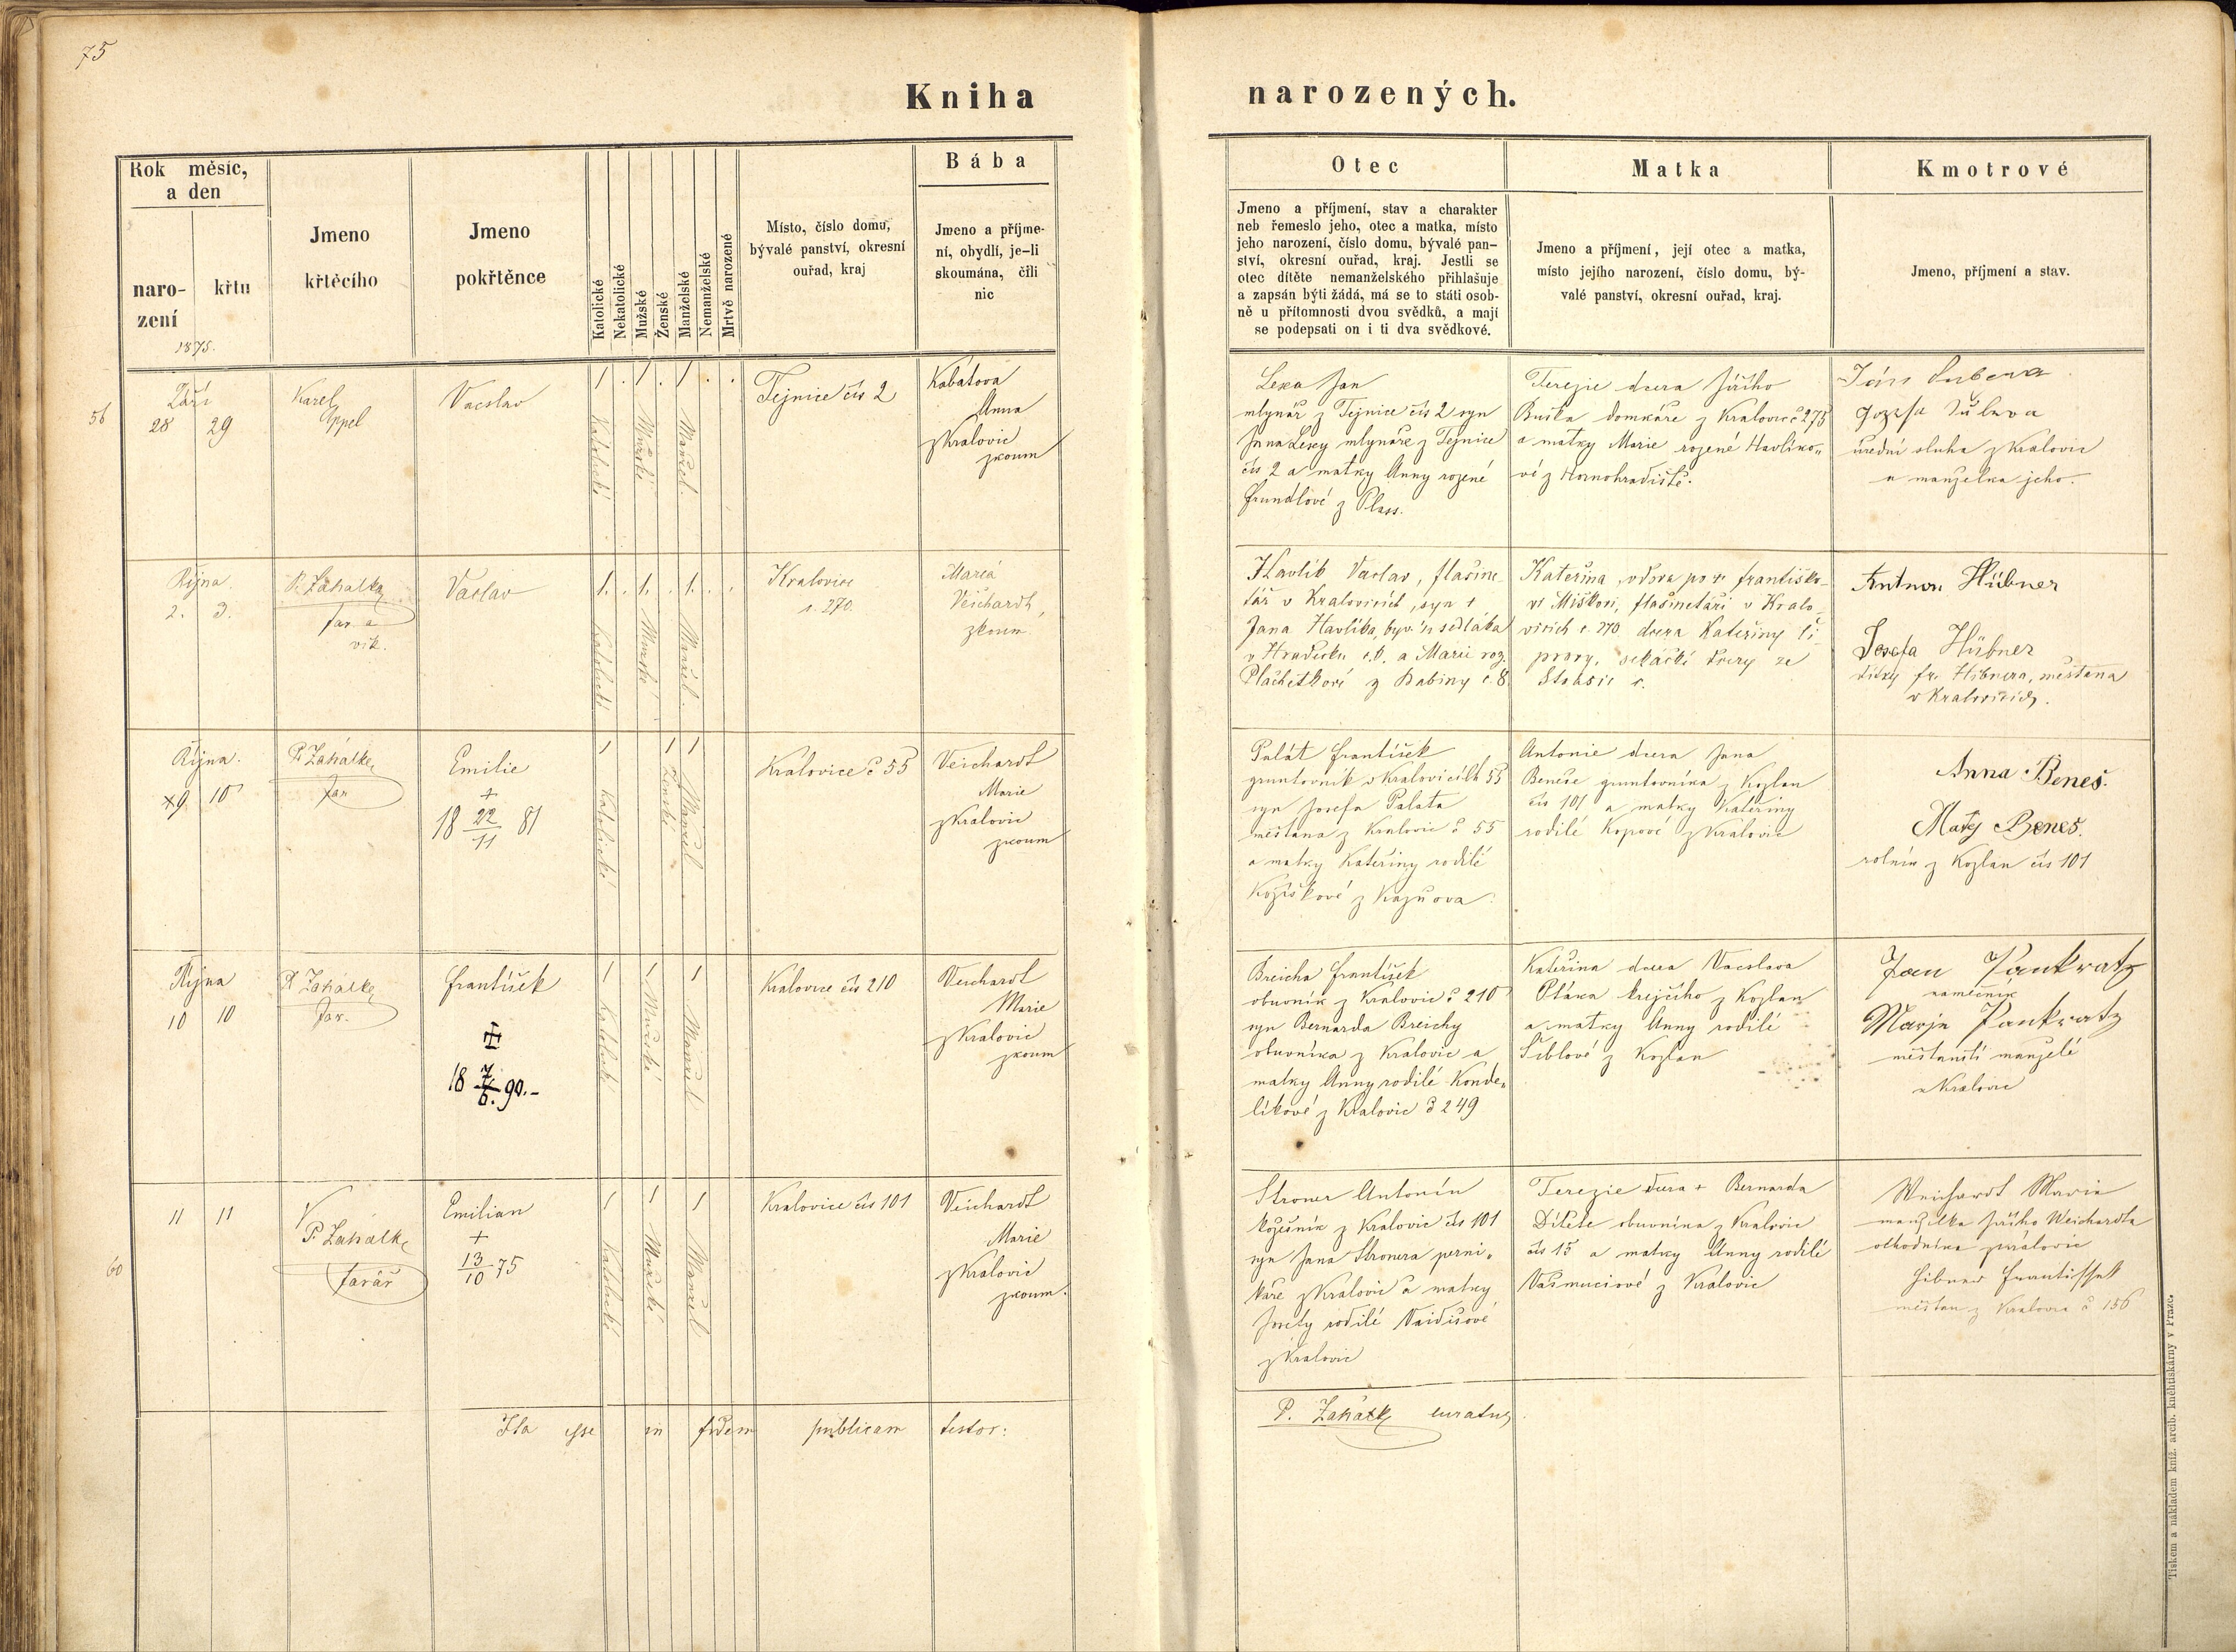 75
Kniha narozených.
Rok měsíc, a den
naro-
zení
křtu
1875.
Jmeno
křtěcího
Jmeno
pokřtěnce
Katolické
Nekatolické
Mužské
Ženské
Manželské
Nemanželské
Mrtvě narozené
Místo, číslo domu,
bývalé panství, okresní
ouřad, kraj
Bába
Jmeno a příjme-
ní, obydlí, je-li
skoumána, čili
nic
Otec
Jmeno a příjmení, stav a charakter
neb řemeslo jeho, otec a matka, místo
jeho narození, číslo domu, bývalé pan-
ství, okresní ouřad, kraj. Jestli se
otec dítěte nemanželského přihlašuje
a zapsán býti žádá, má se to státi osob-
ně u přítomnosti dvou svědků, a mají
se podepsati on i ti dva svědkové.
Matka
Jmeno a příjmení, její otec a matka,
místo jejího narození, číslo domu, bý-
valé panství, okresní ouřad, kraj.
Kmotrové
Jmeno, příjmení a stav.
56
Září
28 29
Karel
Appel
Vacslav
1 . 1 . 1 . .
Katolické
Mužské
Manžel.
Tejnice čís 2
Kabatova
Anna
z Kralovic
zkoum
Lexa Jan
mlynář z Tejnice čís 2 syn
Jana Lexy mlynáře z Tejnice
čís 2 a matky Anny rozené
z Plass.
Terezie dcera Jiřího
Buška domkáře z Kralovic č 275
a matky Marie rozené Havlíko„
vé z Hornohradiště.
Jozefa
úřední sluha z Kralovic
a manželka jeho.
Října.
2. 3.
P. Zahálka
far. a
vik.
Václav
1. . 1. . 1. . .
Katolické
Mužské
Manžel.
Kralovice
č. 270.
Maria
Veichardt,
zkoum.
Havlík Václav, flašine-
tář v Kralovicích, syn †
Jana Havlíka, býv. sedláka
v Hradecku č. 6. a Marie roz.
Plachetkové z Babiny č. 8.
Kateřina, vdova po † Františko-
vi Miškovi, flašinetáři v Kralo-
vicích č. 270. dcera Kateřiny
ze
Antnon Hübner
Josefa Hübner
dítky fr. Hibnera, měšťana
v Kralovicích.
Října.
×9 10
P. Zahálka
far
Emilie
+
18 22/11 81
1 1 1
Katolické
Ženské
Manžel
Kralovice č 55
Veichardt
Marie
z Kralovic
zkoum
Palát František
gruntovník v Kralovicích 55
syn Josefa Palata
měšťana z Kralovic č 55
a matky Kateřiny rodilé
Kožíškové z Kaznova
Antonie dcera Jana
Beneše gruntovníka z Kozlan
čís 101 a matky Kateřiny
rodilé Kopové z Kralovic
Anna Beneš.
Matěj Beneš.
rolník z Kozlan čís 101
Října
10 10
P. Zahálka
far.
František
18 7/6. 90.-
1 1 1
Katolické
Mužské
Manžel
Kralovice čís 210
Veichardt
Marie
z Kralovic
zkoum
Breicha František
obuvník z Kralovic č 210
syn Bernarda Breichy
obuvníka z Kralovic a
matky Anny rodilé Konde„
líkové z Kralovic č 249
Kateřina dcera Vacslava
Ptáka krejčího z Kozlan
a matky Anny rodilé
Šiblové z Kozlan
Jan Pankratz
Marje Pankratz
měšťanští manželé
z Kralovic
60
11 11
P. Zahálka
farář
Emilian
+
13/10 75
1 1 1
Katolické
Mužské
Manžel
Kralovice čís 101
Veichardt
Marie
z Kralovic
zkoum.
Stroner Antonín
kožešník z Kralovic čís 101
syn Jana Stronera perní„
káře z Kralovic a matky
Josefy rodilé Vaidišové
z Kralovic
Terezie dcera + Bernarda
Dítěte obuvníka z Kralovic
čís 15 a matky Anny rodilé
z Kralovic
Weichardt Marie
manželka Jiřího Weichardta
obchodníka z Kralovic
Hibner Frantisshek
měšťan z Kralovic č 156
Ita esse in fidem publicam testor:
P. Zahálka curatus
Tiskem a nákladem kníž. arcib. kněhtiskárny v Praze.